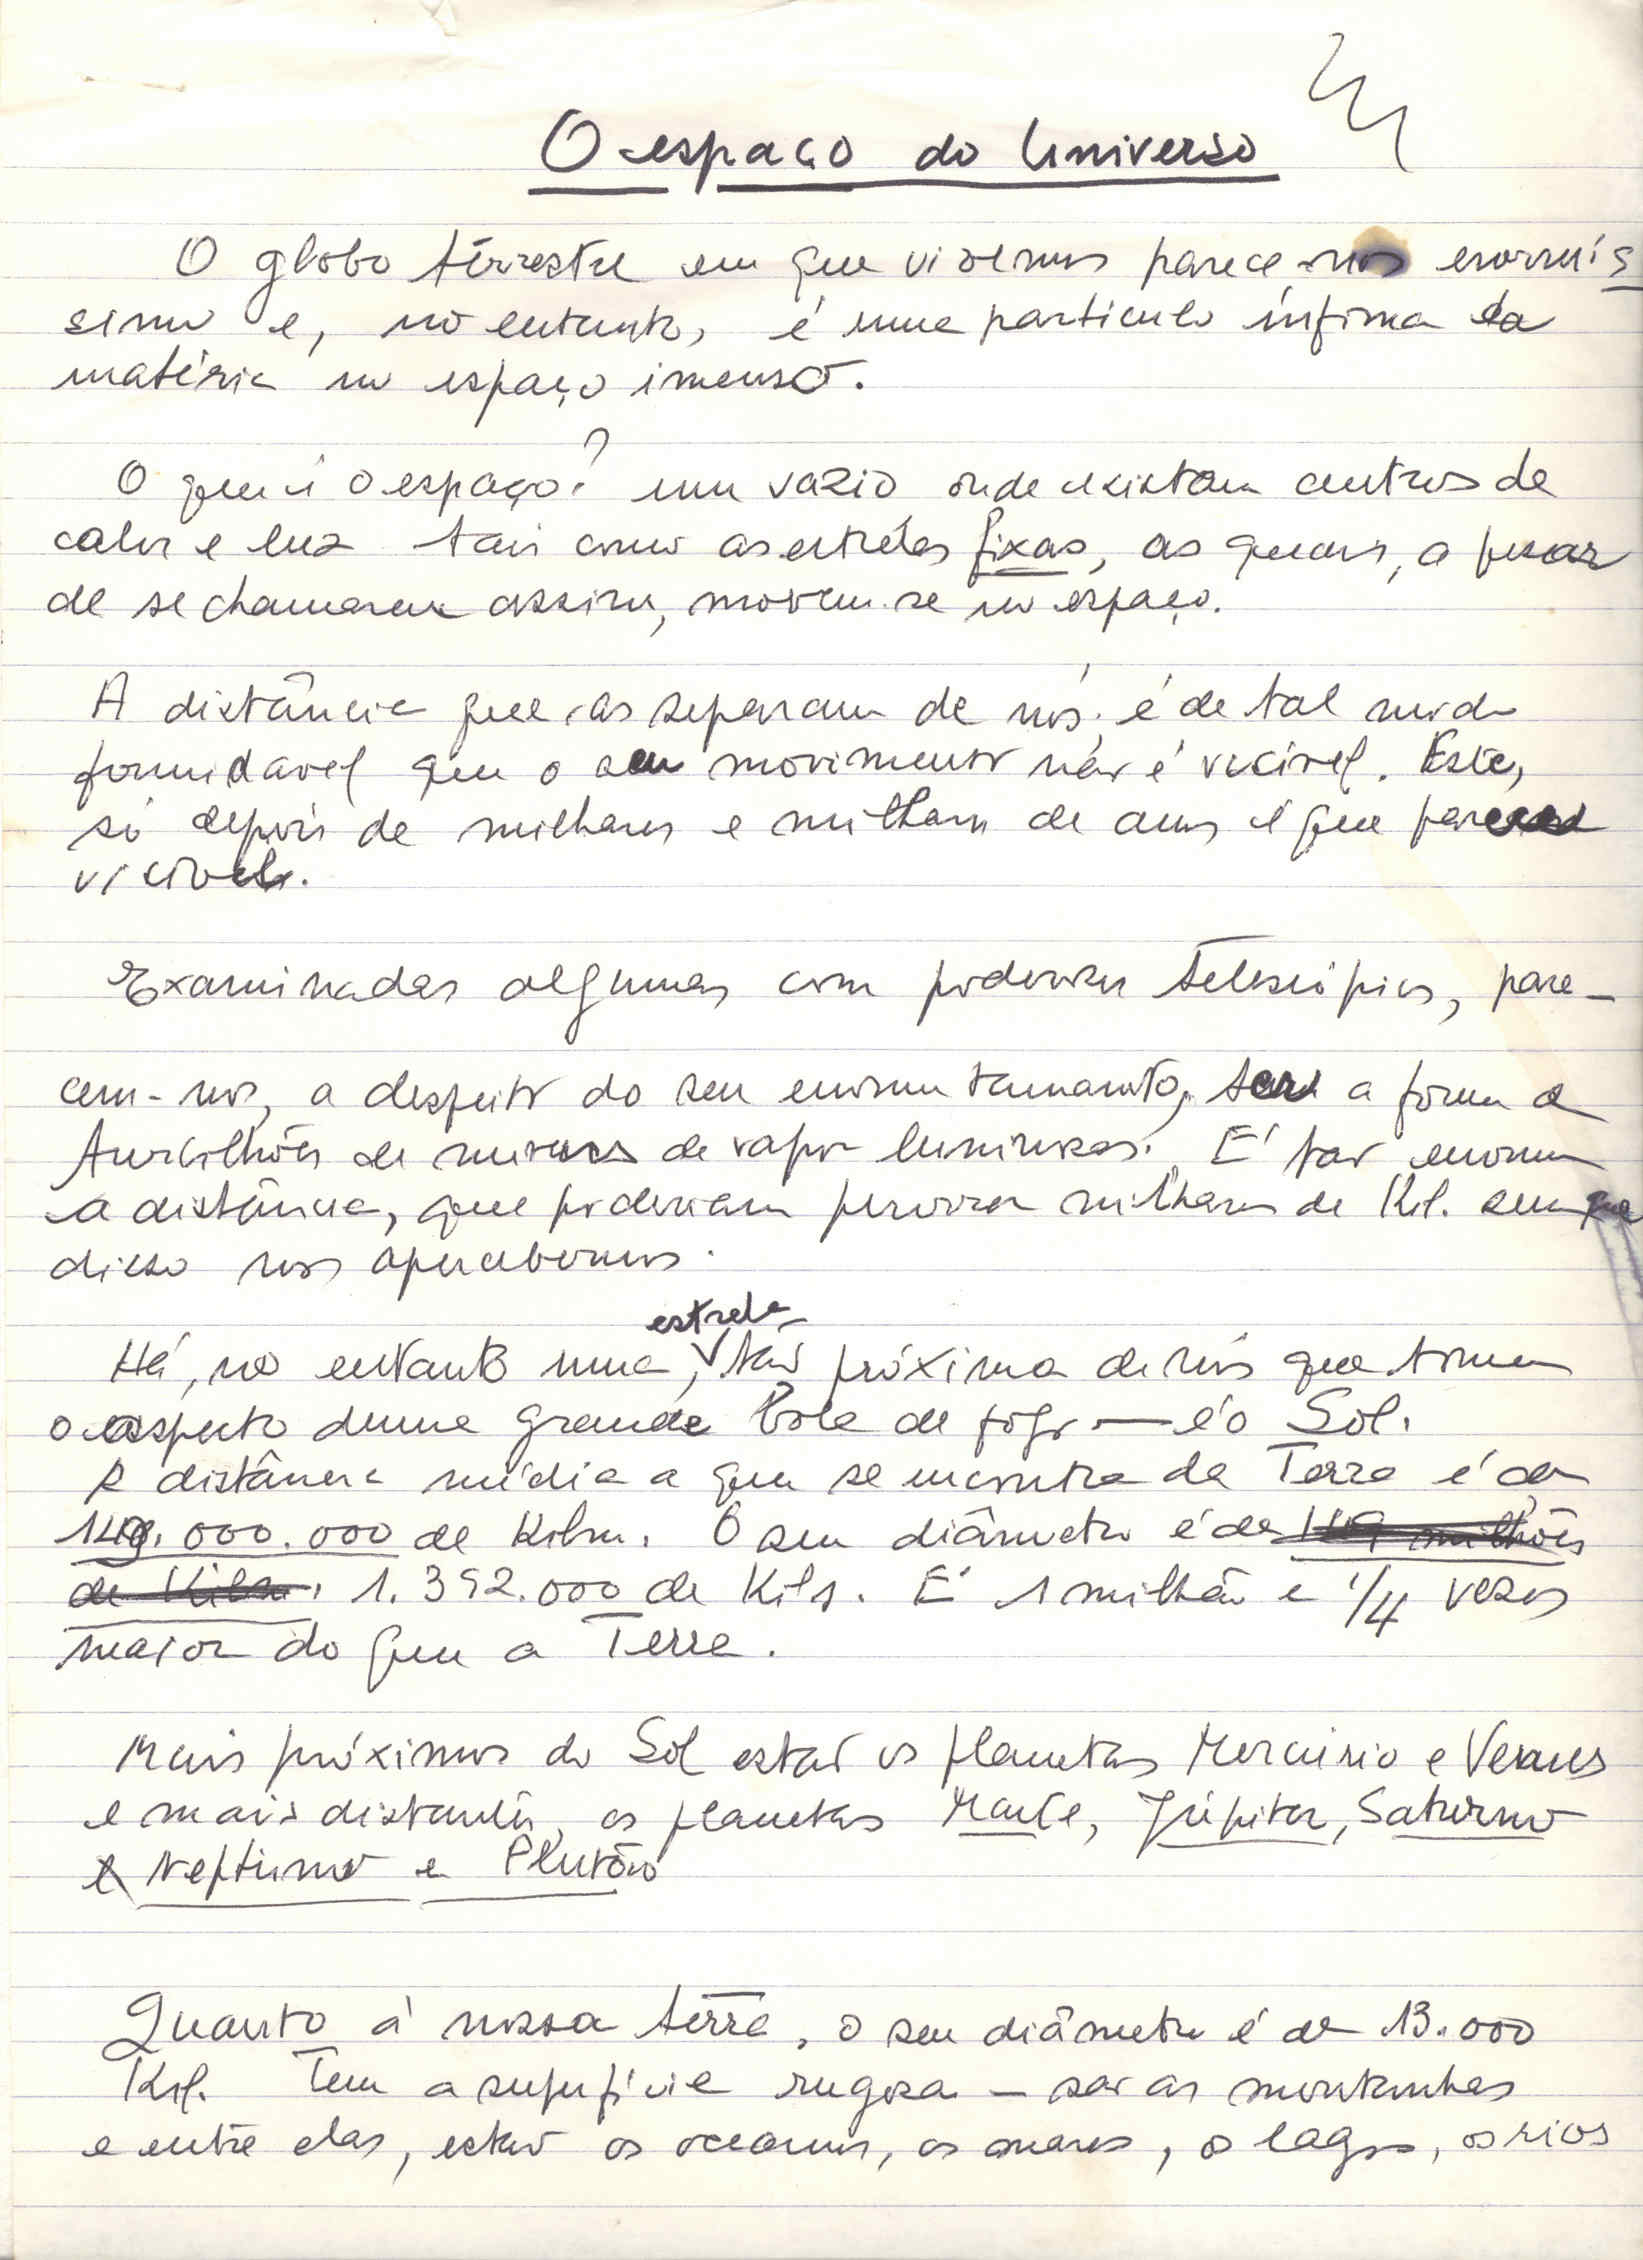 O espaço do Universo
O globo térrestre em que vivemos parece-nos enormís
simo e, no entanto, é uma particula ínfima da
matéria no espaço imenso.
O que é o espaço? um vazio onde existem centros de
calor e luz tais como as estrêlas fixas, as quais, a pesar
de se chamarem assim, movem-se no espaço.
A distância que as separam de nós, é de tal modo
formidavel que o seu movimento não é vicível. Este,
só depois de milhares e milhares de anos é que parece
vicível.
Examinadas algumas com poderosos telescópios, pare-
cem-nos, a despeito do seu enorme tamanho, ter a forma de
turbilhões de nuvens de vapor luminosas. É tão enorme
a distância, que poderiam percorrer milhares de Kil. sem que
disso nos apercebemos.
Há, no entanto uma, estrela tão próxima de nós que toma
o aspecto duma grande bola de fogo — é o Sol.
A distância média a que se encontra da Terra é de
149.000.000 de Kilm. O seu diâmetro é de 149 milhões
de Kilm. 1.392.000 de Kils. É 1 milhão e 1/4 vezes
maior do que a Terra.
Mais próximos do Sol estão os planetas Mercúrio e Venus
e mais distantes, os planetas Marte, Júpiter, Saturno
e Neptuno e Plutão
Quanto à nossa terra, o seu diâmetro é de 13.000
Kil. Tem a superfície rugosa — são as montanhas
e entre elas, estão os oceanos, os mares, os lagos, os rios